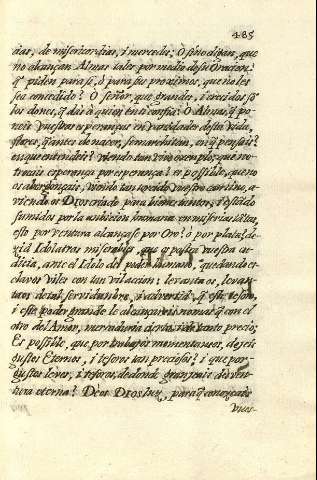 485
cias, de misericordias, i mercedes; O si no digan, que
no alcançan Almas tales por medio de su Oracion?
q̃ piden para si, ò para sus proximos, que no les
sea concedido? O señor, que grandes, i crecidos sõ
los dones, q̃ dais à quiẽ en vos confia: O Almas, q̃ po-
neis vuestra esperança en vanidades desta vida,
flores, q̃ antes de nacer, se marchitan, en q̃ pensais?
en que entendeis? viendo tan vivo exemplo, que no
trocais esperança por esperança? es possible, que no
os avergonçais, viendo tan torcido vuestro camino, a-
viendo os Dios criado para bienes
sumidos por la ambicion humana en miserias tãtas,
esto por ventura alcançase por Oro? ò por plata? de-
zid Idolatras miserables, que postra vuestra cu-
dicia, ante el Idolo del poder humano, quedando es-
clavos viles con tan vil accion; levantaos, levan-
taos de tal servidumbre, i advertid, q̃ este tesoro,
i este poder grande le alcançareis no mas, q̃ con el
otro del Amor, mercaduria cierta, i de tanto precio;
Es possible, que por trabajos momentaneos, dexeis
gustos Eternos, i tesoros tan preciosos? i que por
gustos leves, i tesoros, de donde granjeais desven-
tura eterna? Deos Dios luz, para q̃ conozcais
vues-